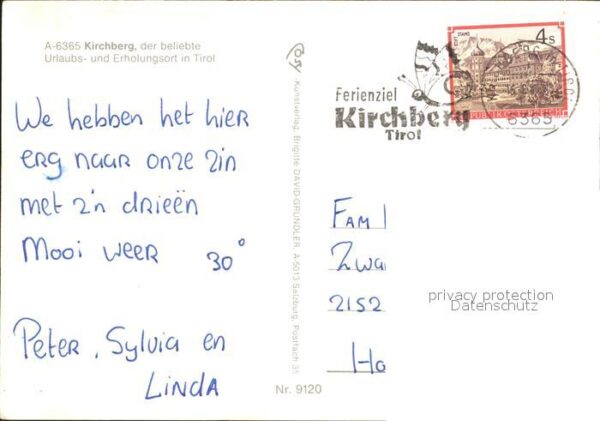 A-6365 Kirchberg, der beliebte
Urlaubs- und Erholungsort in Tirol
We hebben het hier
erg naar onze zin
met z'n drieën
Mooi weer 30°
Peter, Sylvia en
Linda
Nr. 9120
Cosy
Kunstverlag, Brigitte DAVID-GRÜNDLER, A-5013 Salzburg, Postfach 31
Ferienziel
Kirchberg
Tirol
4 S
REPUBLIK ÖSTERREICH
6365
Fam
Zwa
2152
Ho
privacy protection
Datenschutz